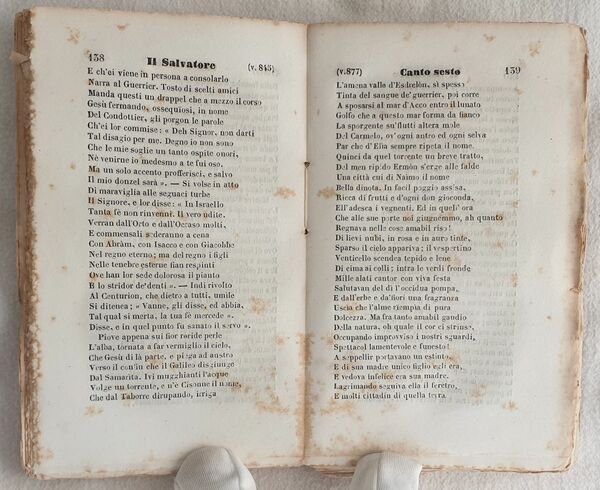 138
Il Salvatore
(v. 845)
E ch'ei viene in persona a consolarlo
Narra al Guerrier. Tosto di scelti amici
Manda questi un drappel che a mezzo il corso
Gesù fermando, ossequiosi, in nome
Del Condottier, gli porgon le parole
Ch'ei lor commise: « Deh Signor, non darti
Tal disagio per me. Degno io non sono
Che le mie soglie un tanto ospite onori,
Nè venirne io medesmo a te fui oso.
Ma un solo accento profferisci, e salvo
Il mio donzel sarà ». — Si volse in atto
Di maraviglia alle seguaci turbe
Il Signore, e lor disse: « In Israello
Tanta fè non rinvenni. Il vero udite.
Verran dall'Orto e dall'Occaso molti,
E commensali sederanno a cena
Con Abràm, con Isacco e con Giacobbe
Nel regno eterno; ma del regno i figli
Nelle tenebre esterne fian respinti
Ove han lor sede dolorosa il pianto
E lo stridor de'denti ». — Indi rivolto
Al Centurion, che dietro a tutti, umile
Si ditenea; « Vanne, gli disse, ed abbia,
Tal qual si merta, la tua fè mercede ».
Disse, e in quel punto fu sanato il servo.
Piove appena sui fior roride perle
L'alba, tornata a far vermiglio il cielo,
Che Gesù di là parte, e piega ad austro
Verso il confin che il Galileo disgiunge
Dal Samarita. Ivi mugghianti l'acque
Volge un torrente, e n'è Cisonne il nome,
Che dal Taborre dirupando, irriga
(v. 877)
Canto sesto
139
L'amena valle d'Esdrelòn, sì spesso
Tinta del sangue de'guerrier, poi corre
A sposarsi al mar d'Acco entro il lunato
Golfo che a questo mar forma da fianco
La sporgente su'flutti altera mole
Del Carmelo, ov'ogni antro ed ogni selva
Par che d'Elia sempre ripeta il nome.
Quinci da quel torrente un breve tratto,
Del men ripido Ermòn s'erge alle falde
Una città cui di Naimo il nome
Bella dinota. In facil poggio assisa,
Ricca di frutti e d'ogni don gioconda,
Ell'adesca i vegnenti. Ed in quell'ora
Che alle sue porte noi giugnemmo, ah quanto
Regnava nelle cose amabil riso!
Di lievi nubi, in rosa e in auro tinte,
Sparso il cielo appariva; il vespertino
Venticello scendea tepido e lene
Di cima ai colli; intra le verdi fronde
Mille alati cantor con viva festa
Salutavan del dì l'occidua pompa,
E dall'erbe e da'fiori una fragranza
Uscia che l'alme riempia di pura
Dolcezza. Ma fra tanto amabil gaudio
Della natura, oh quale il cor ci strinse,
Occupando improvviso i nostri sguardi,
Spettacol lamentevole e funesto!
A seppellir portavano un estinto,
E di sua madre unico figlio egli era,
E vedova infelice era sua madre.
Lagrimando seguiva ella il feretro,
E molti cittadin di quella terra